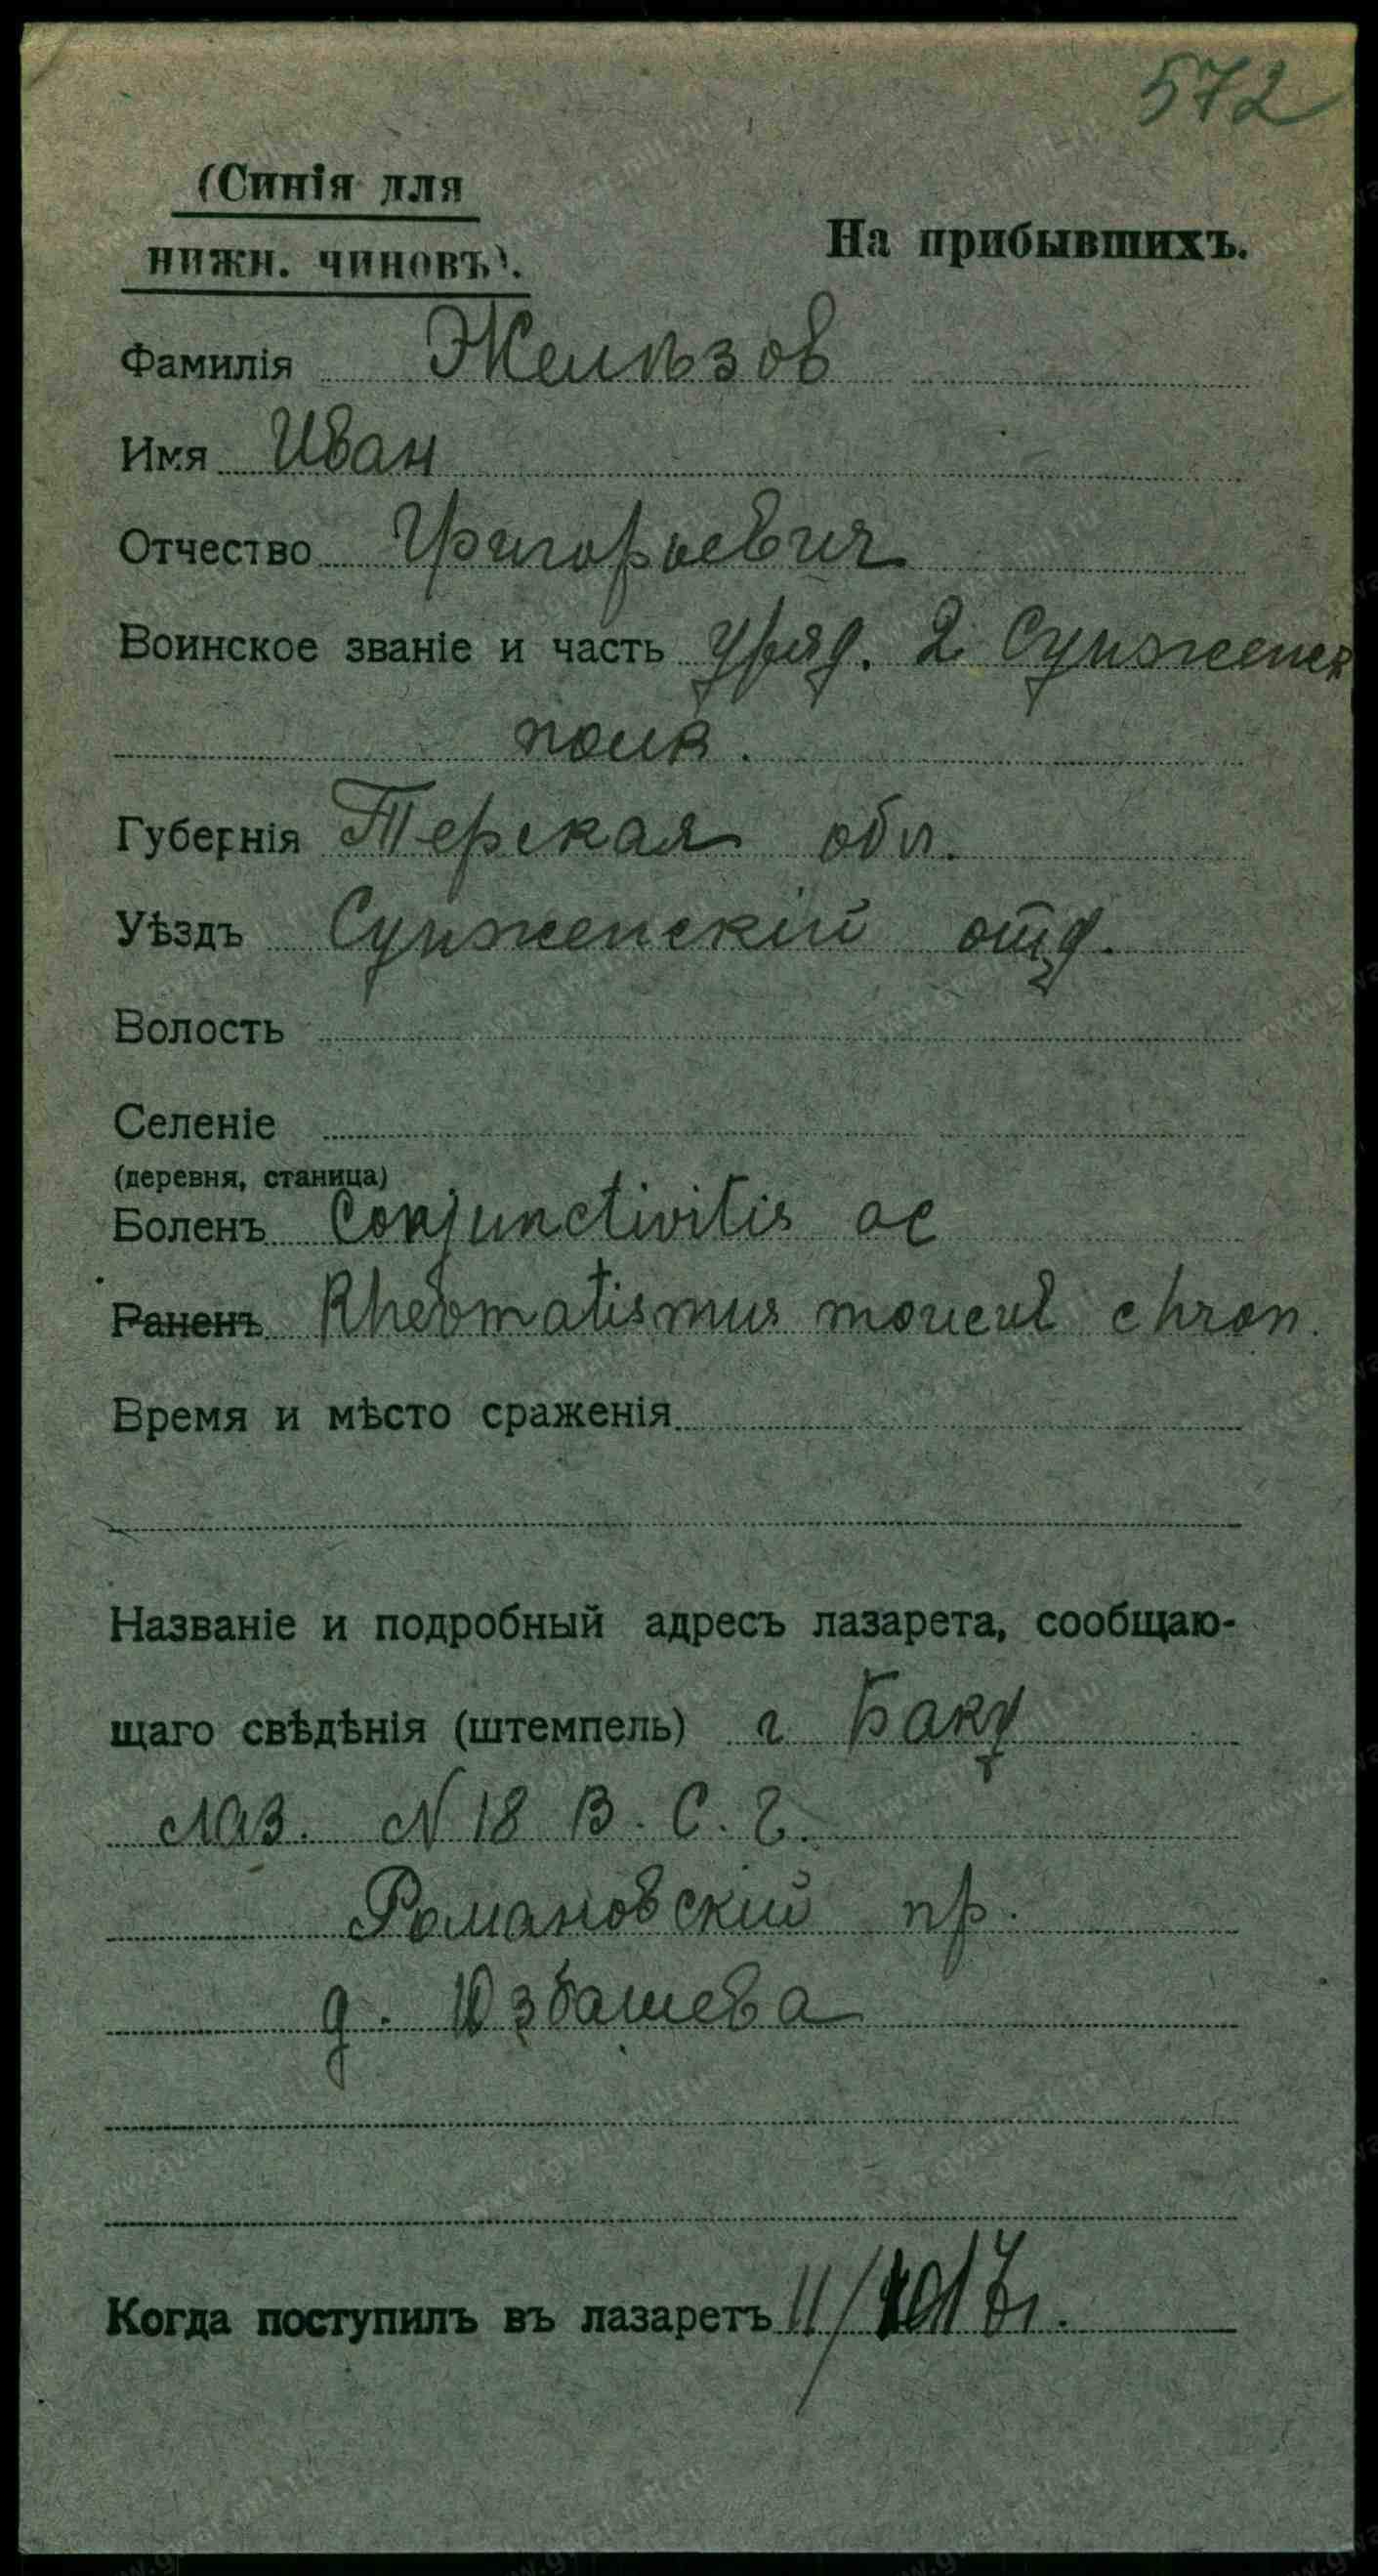 572
(Синія для
нижн. чиновъ).
На прибывшихъ.
Фамилія Желѣзов
Имя Иван
Отчество Григорьевич
Воинское званіе и часть уряд. 2 Сунженск
полк.
Губернія Терская обл.
Уѣздъ Сунженскій отд.
Волость
Селеніе
(деревня, станица)
Боленъ Conjunctivitis ac
Раненъ Rheomatismus chron.
Время и мѣсто сраженія
Названіе и подробный адресъ лазарета, сообщаю-
щаго свѣдѣнія (штемпель) г Баку
лаз. N 18 В. С. Г.
Романовский пр.
д. Юзбашева
Когда поступилъ въ лазаретъ 11/